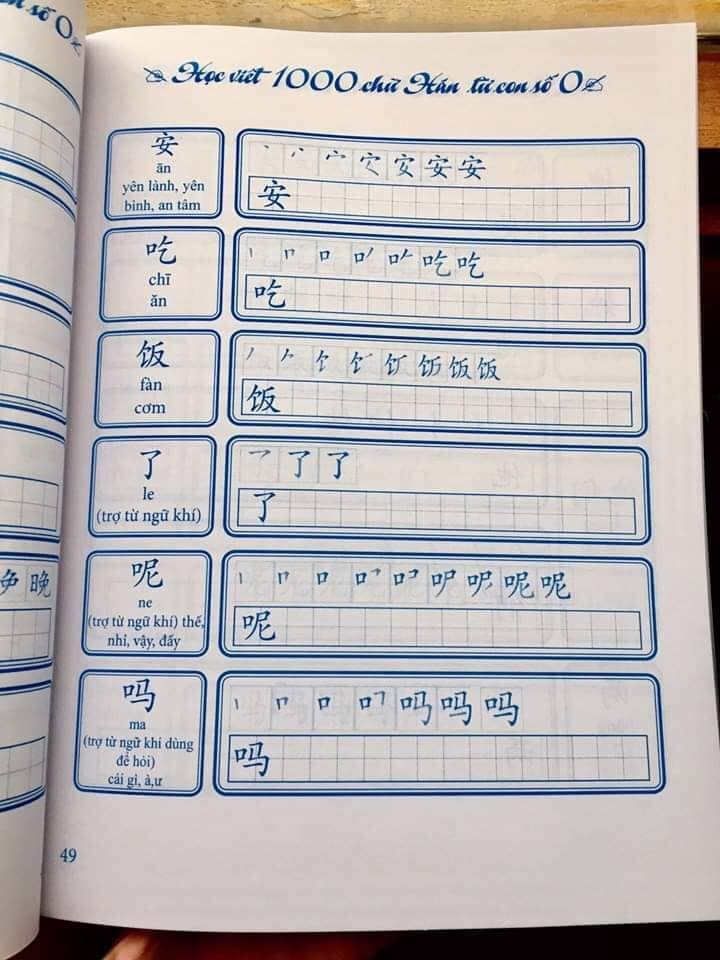 n số 0
Học viết 1000 chữ Hán từ con số 0
安
ān
yên lành, yên
bình, an tâm
丶 宀 安 安 安
安
吃
chī
ăn
丨 冂 口 吃 吃
吃
饭
fàn
cơm
丿 𠂉 饣 饭 饭
饭
了
le
(trợ từ ngữ khí)
乛 了 了
了
呢
ne
(trợ từ ngữ khí) thế,
nhỉ, vậy, đấy
丨 冂 口 呢 呢
呢
吗
ma
(trợ từ ngữ khí dùng
để hỏi)
cái gì, à,ư
丨 冂 口 吗 吗 吗
吗
晚
49